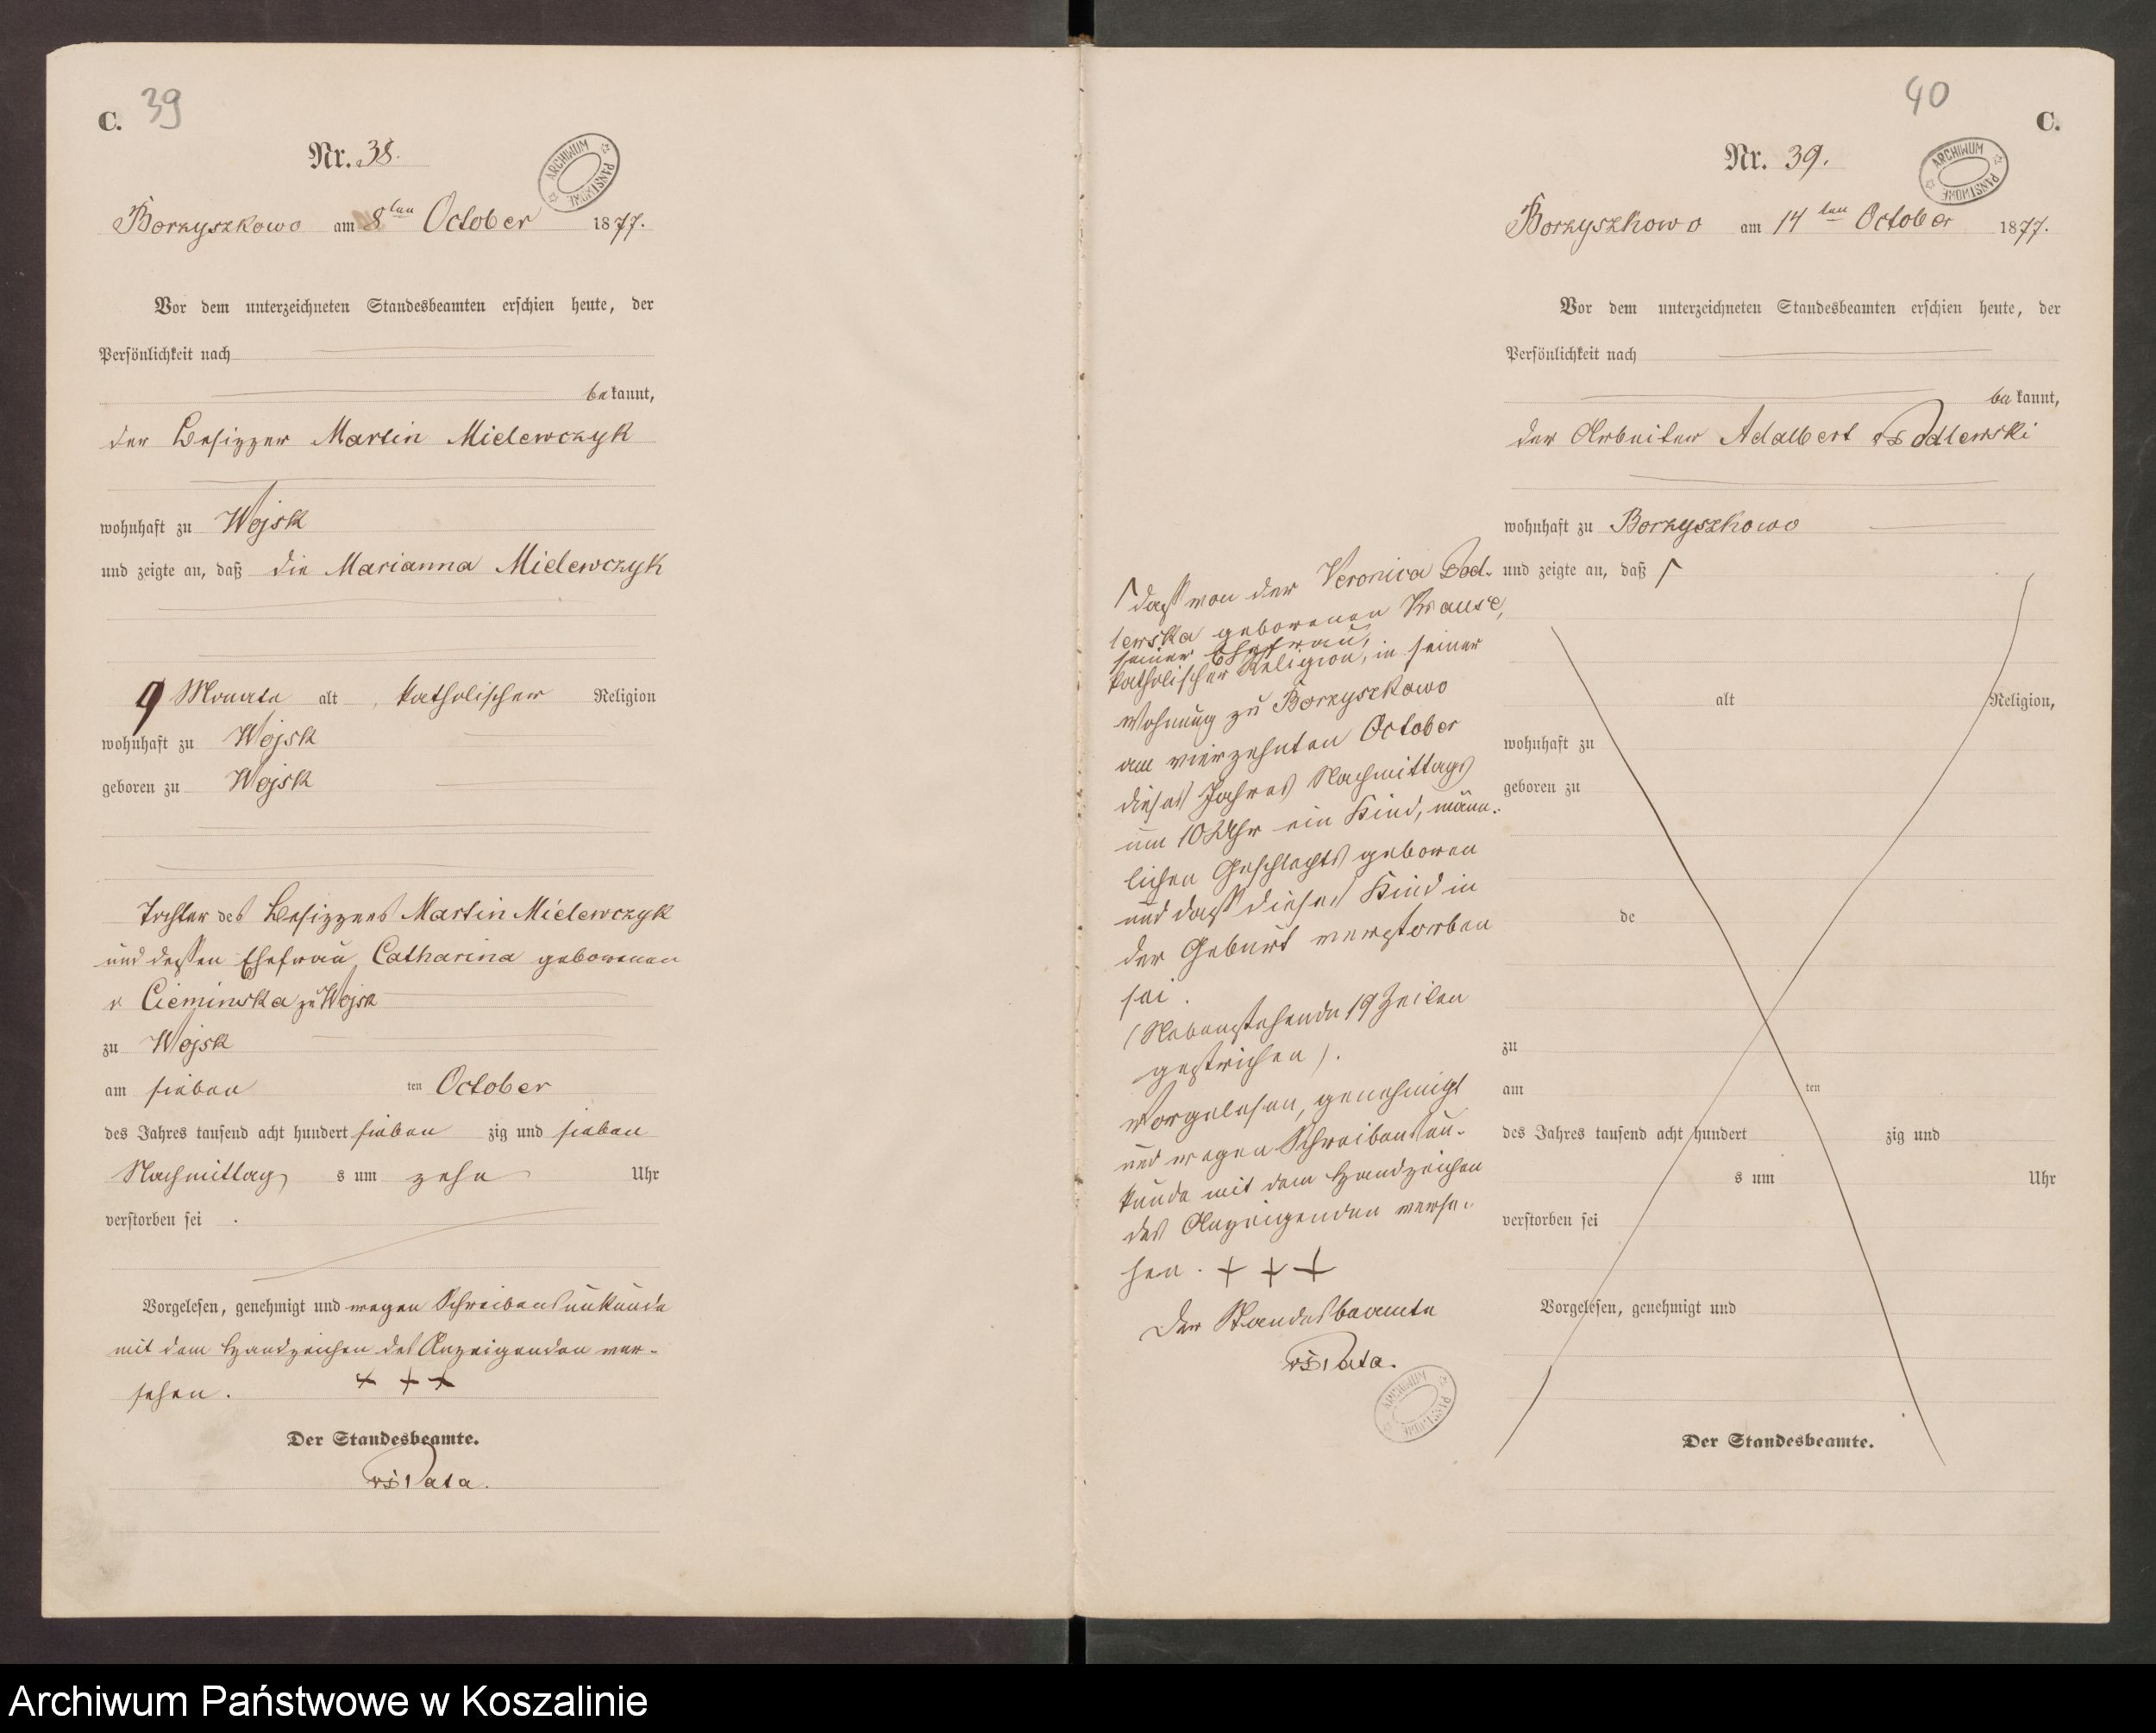 C. 39
Nr. 38.
ARCHIWUM PAŃSTWOWE
Borzyszkowo am 8ten October 1877.
Vor dem unterzeichneten Standesbeamten erschien heute, der
Persönlichkeit nach
bekannt,
der Besizzer Martin Mielewczyk
wohnhaft zu Wojsk
und zeigte an, daß die Marianna Mielewczyk
9 Monate alt, katholischer Religion
wohnhaft zu Wojsk
geboren zu Wojsk
Tochter des Besizzers Martin Mielewczyk
und dessen Ehefrau Catharina geborenen
v Cieminska zu Wojsk
zu Wojsk
am sieben ten October
des Jahres tausend acht hundert sieben zig und sieben
Nachmittag s um zehn Uhr
verstorben sei .
Vorgelesen, genehmigt und wegen Schreibensunkunde
mit dem Handzeichen des Anzeigenden ver-
sehen. + + +
Der Standesbeamte.
Pata.
40 C.
Nr. 39.
ARCHIWUM PAŃSTWOWE
Borzyszkowo am 14ten October 1877.
Vor dem unterzeichneten Standesbeamten erschien heute, der
Persönlichkeit nach
bekannt,
der Arbeiter Adalbert Podlewski
wohnhaft zu Borzyszkowo
und zeigte an, daß ſ
ſ dass von der Veronica Pod-
lewska geborenen Krause,
seiner Ehefrau,
katholischer Religion, in seiner
Wohnung zu Borzyszkowo
am vierzehnten October
dieses Jahres Nachmittags
um 10 Uhr ein Kind, männ-
lichen Geschlechts geboren
und dass dieses Kind in
der Geburt verstorben
sei.
(Nebenstehende 19 Zeilen
gestrichen).
Vorgelesen, genehmigt
und wegen Schreibensun-
kunde mit dem Handzeichen
des Anzeigenden verse-
hen. + + +
Der Standesbeamte
Pata.
ARCHIWUM PAŃSTWOWE
alt Religion,
wohnhaft zu
geboren zu
de
zu
am ten
des Jahres tausend acht hundert zig und
s um Uhr
verstorben sei
Vorgelesen, genehmigt und
Der Standesbeamte.
Archiwum Państwowe w Koszalinie